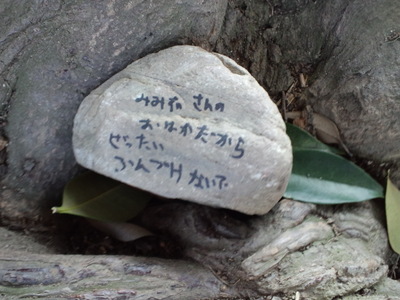 みみずさんの
おはかだから
ぜったい
ふんづけないで